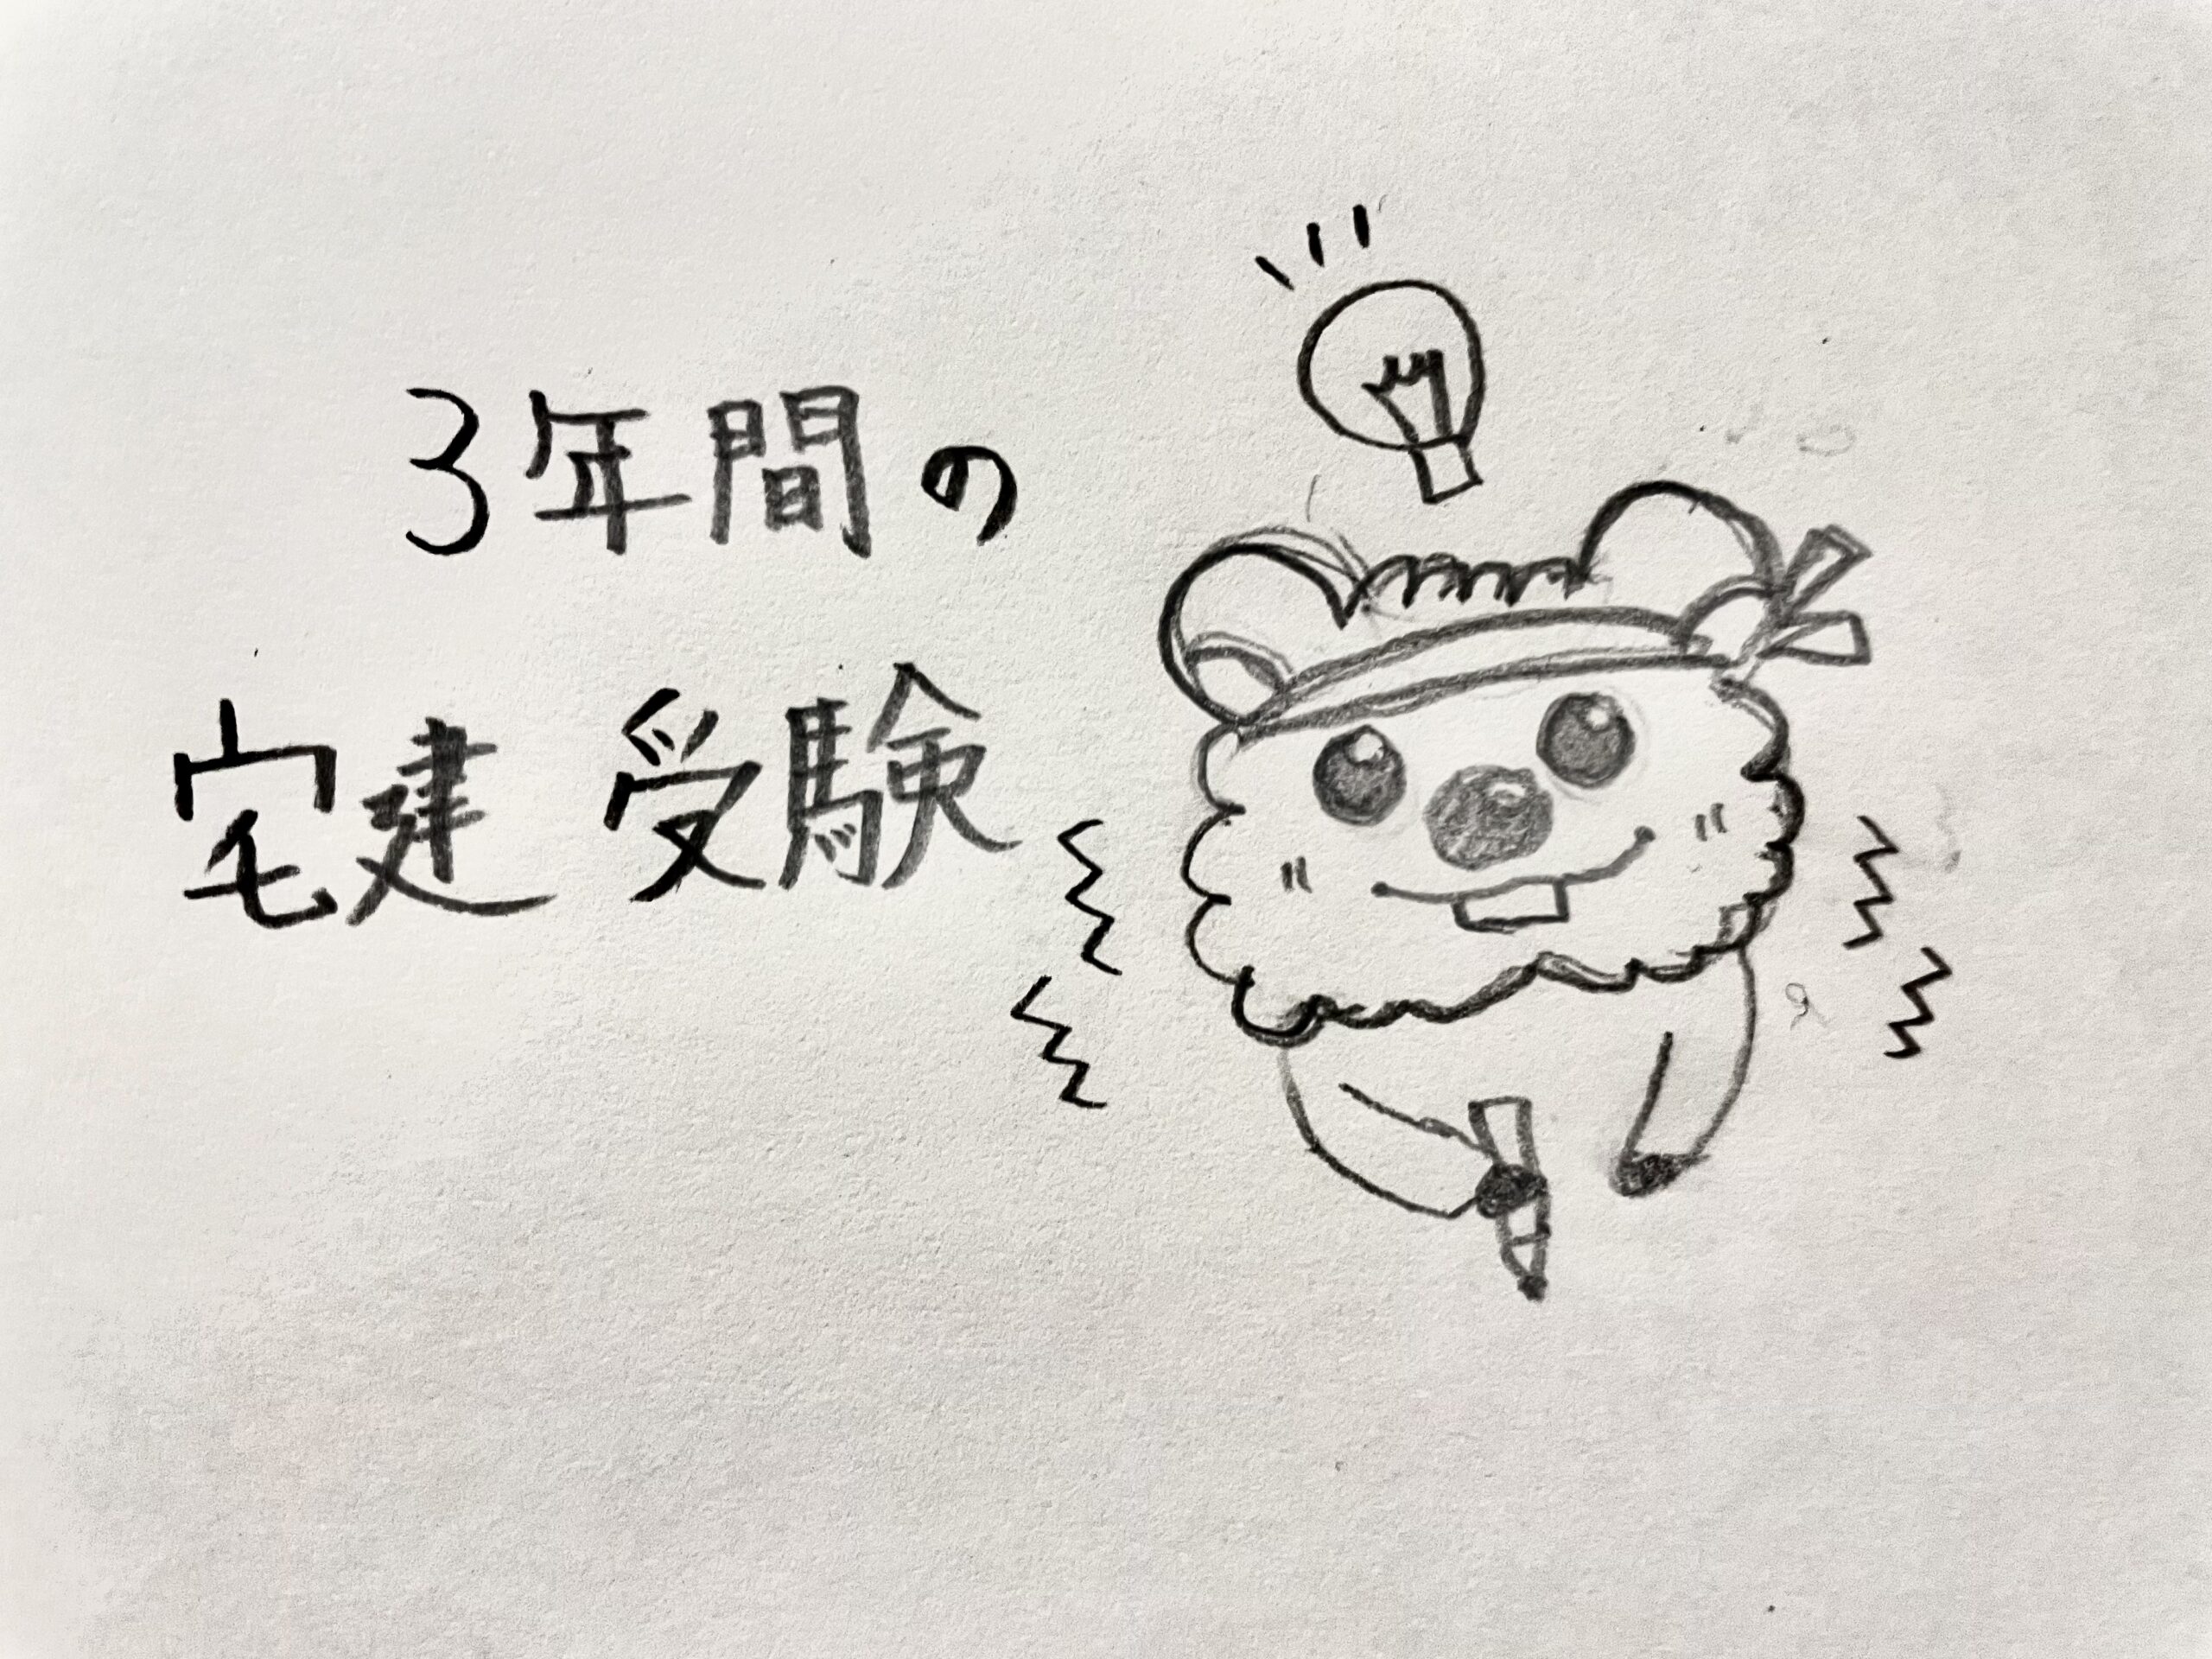 3年間の
宅建受験